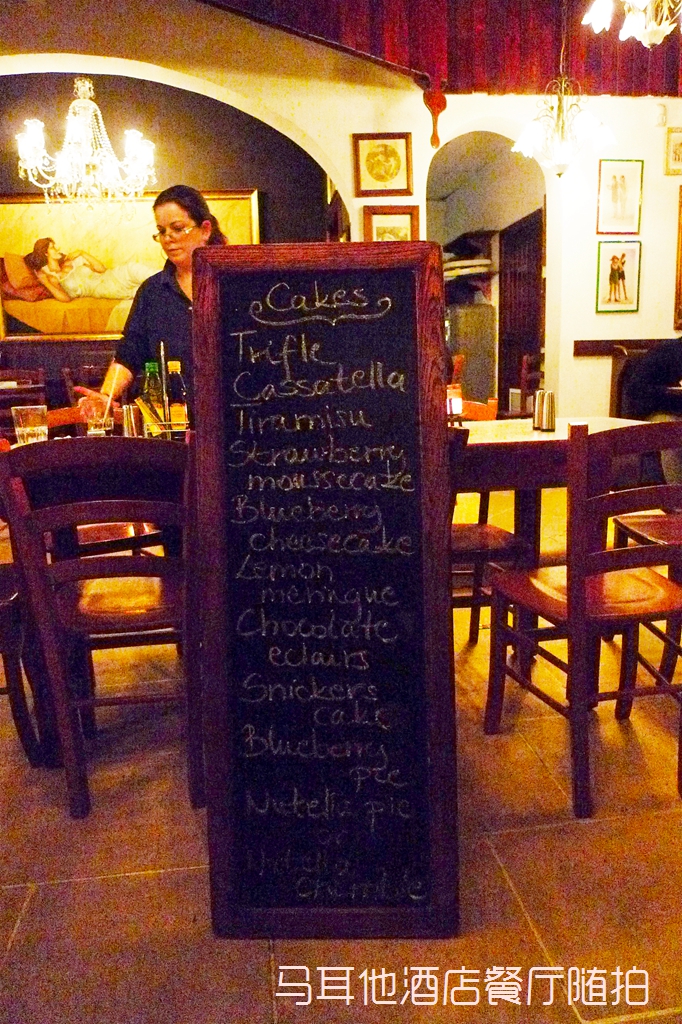 Cakes
Trifle
Cassatella
Tiramisu
Strawberry
moussecake
Blueberry
cheesecake
Lemon
meringue
Chocolate
eclairs
Snickers
cake
Blueberry
pie
Nutella pie
or
Nutella
马耳他酒店餐厅随拍